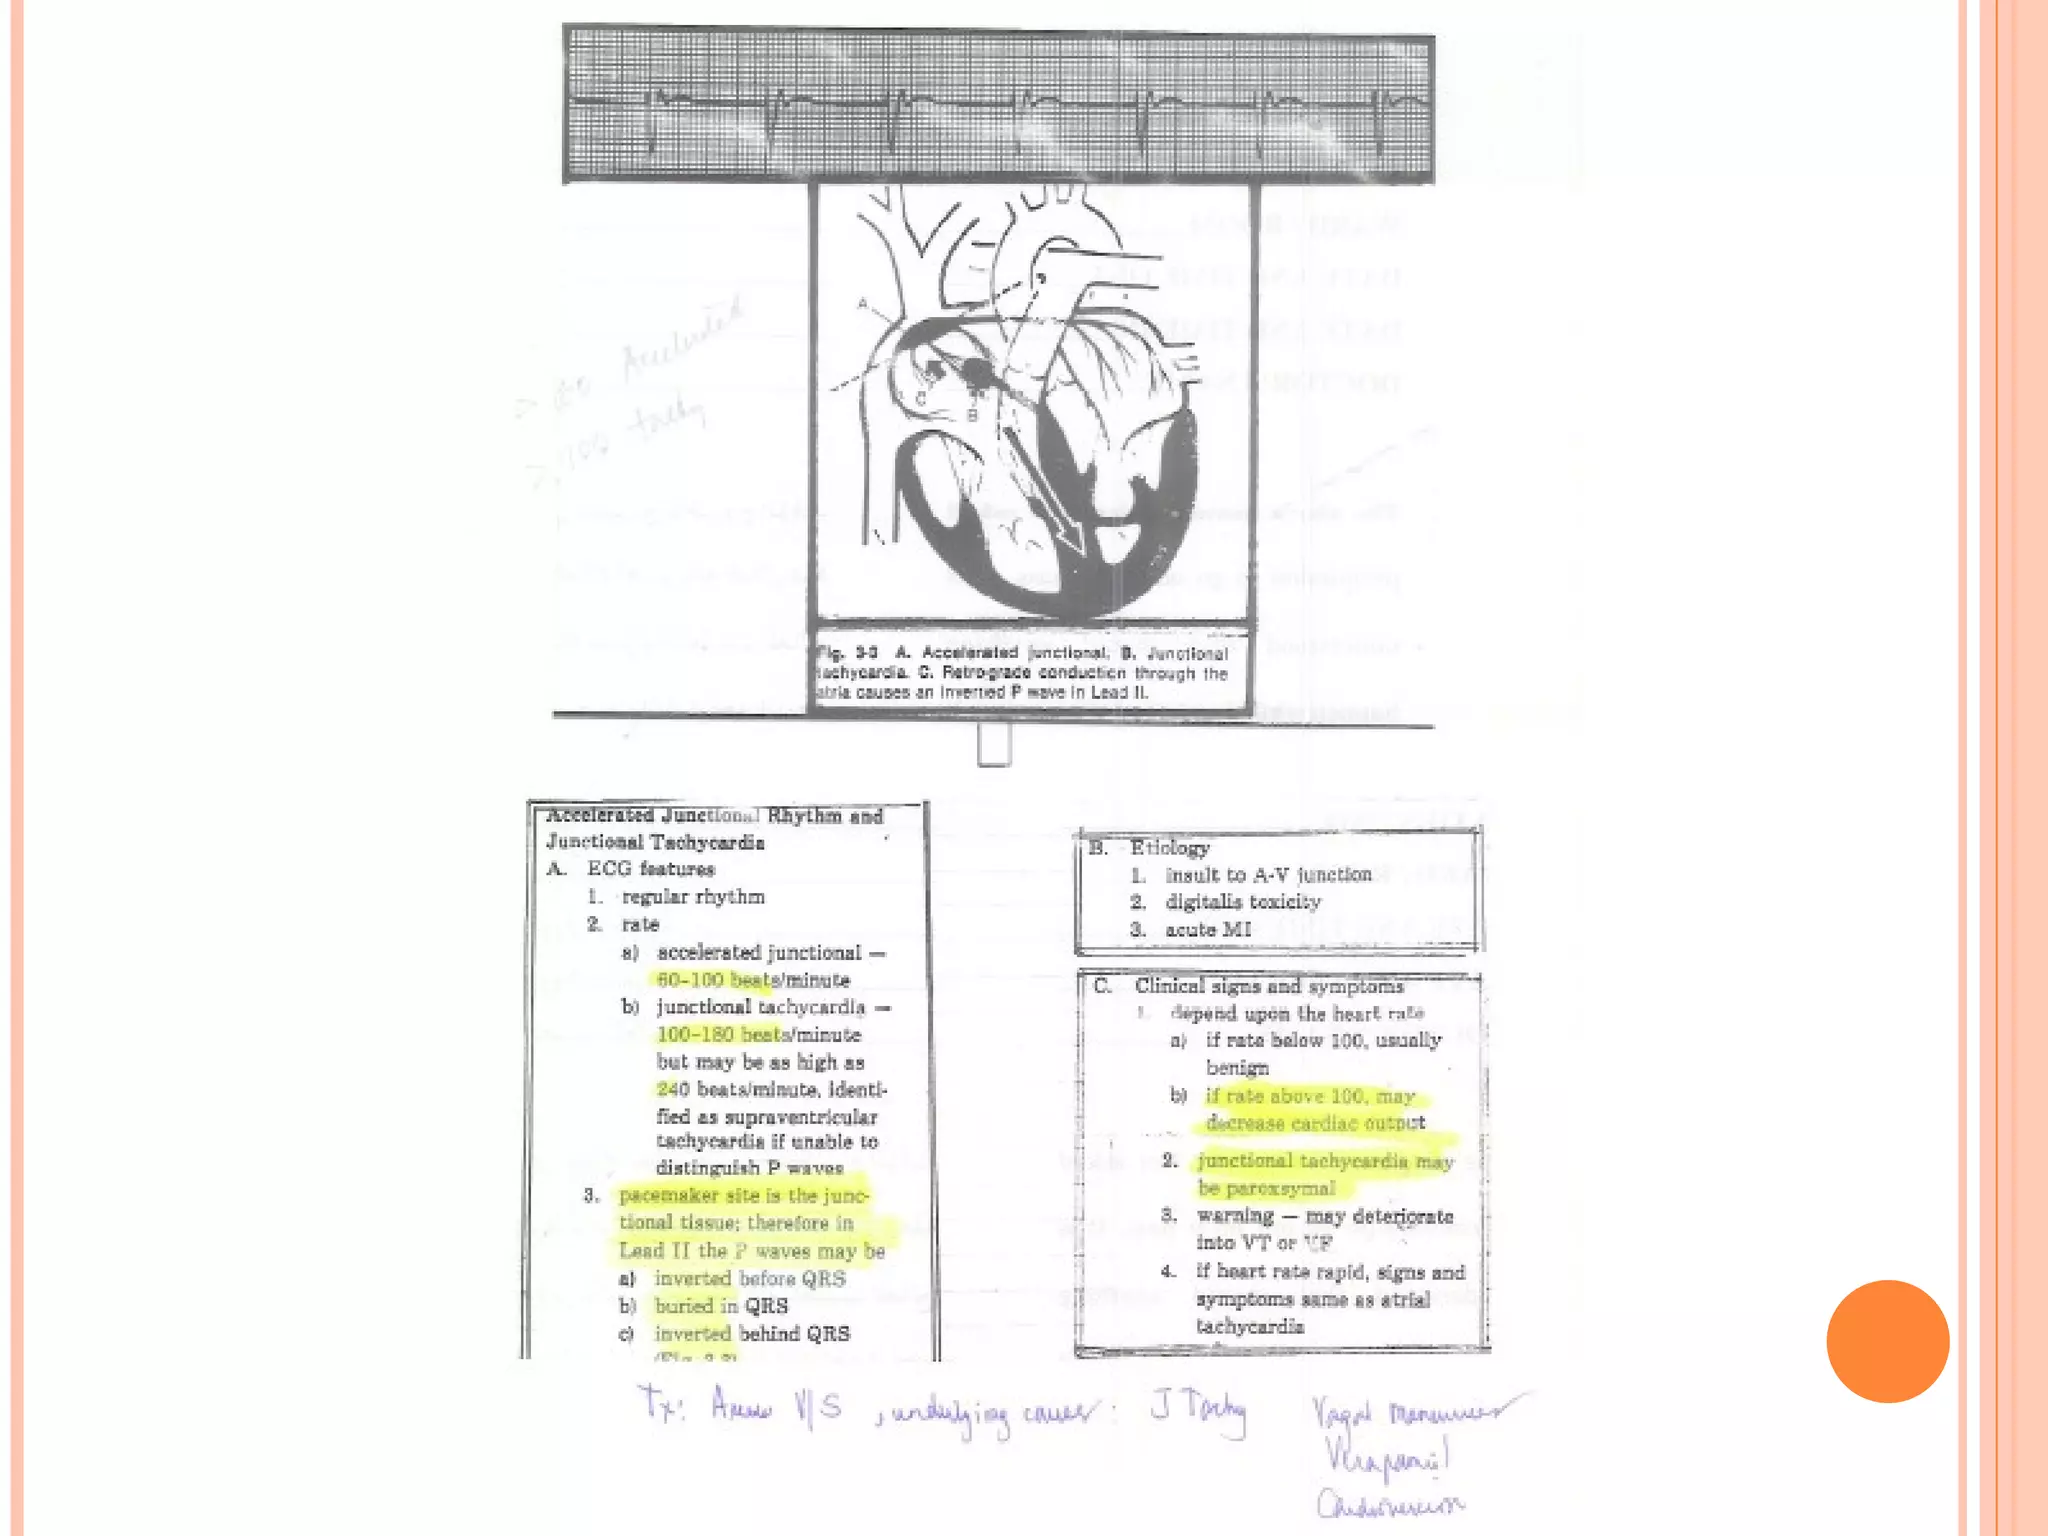 A
C
B
> 60 Accelerated
> 100 tachy
Fig. 3-3 A. Accelerated junctional. B. Junctional
tachycardia. C. Retrograde conduction through the
atria causes an inverted P wave in Lead II.
Accelerated Junctional Rhythm and
Junctional Tachycardia
A. ECG features
1. regular rhythm
2. rate
a) accelerated junctional —
60-100 beats/minute
b) junctional tachycardia —
100-180 beats/minute
but may be as high as
240 beats/minute, identi-
fied as supraventricular
tachycardia if unable to
distinguish P waves
3. pacemaker site is the junc-
tional tissue; therefore in
Lead II the P waves may be
a) inverted before QRS
b) buried in QRS
c) inverted behind QRS
B. Etiology
1. insult to A-V junction
2. digitalis toxicity
3. acute MI
C. Clinical signs and symptoms
1. depend upon the heart rate
a) if rate below 100, usually
benign
b) if rate above 100, may
decrease cardiac output
2. junctional tachycardia may
be paroxsymal
3. warning — may deteriorate
into VT or VF
4. if heart rate rapid, signs and
symptoms same as atrial
tachycardia
Tx: Assess V/S, underlying cause: J Tachy Vagal maneuver
Verapamil
Cardioversion